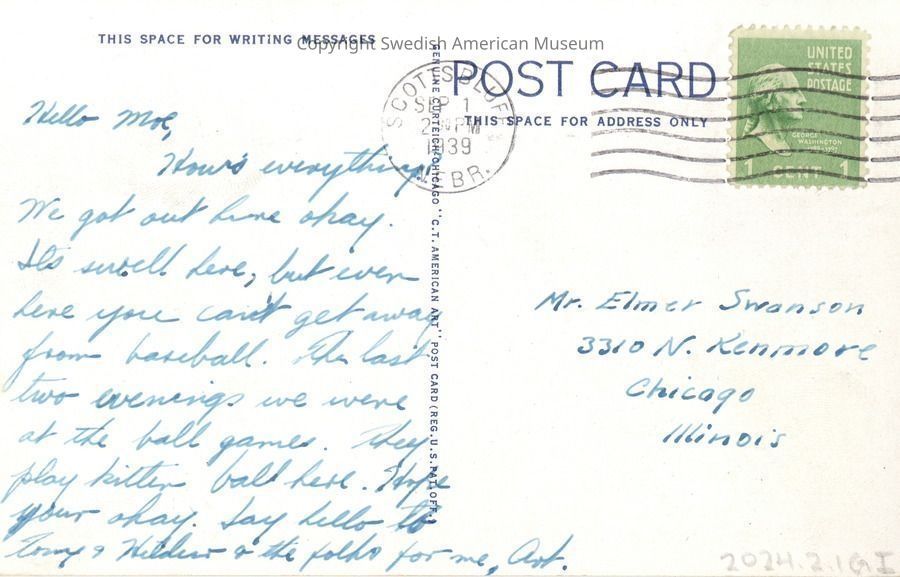 THIS SPACE FOR WRITING MESSAGES
Copyright Swedish American Museum
POST CARD
THIS SPACE FOR ADDRESS ONLY
SCOTTSBLUFF
SEP 1
PM
1939
NEBR.
UNITED
STATES
POSTAGE
GEORGE
WASHINGTON
1 CENT 1
GENUINE CURTEICH-CHICAGO "C.T. AMERICAN ART" POST CARD (REG. U.S. PAT. OFF.)
Hello Moe,
How's everything.
We got out here okay.
Its swell here, but even
here you can't get away
from baseball. The last
two evenings we were
at the ball games. They
play kitten ball here. Hope
your okay. Say hello to
Tony & & the folks for me, Art.
Mr. Elmer Swanson
3310 N. Kenmore
Chicago
Illinois
2024.2.1GI